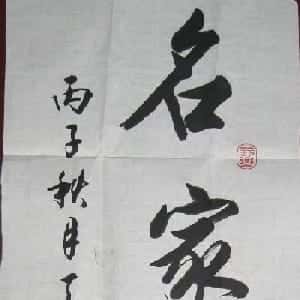 名家
丙子秋月